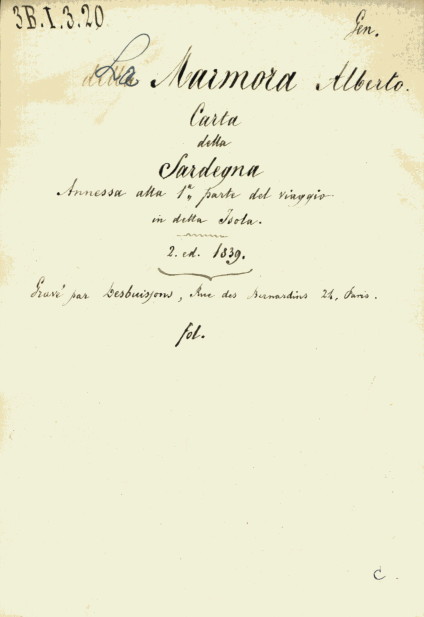 3B.I.3.20
Gen.
La Marmora Alberto.
Carta
della
Sardegna
Annessa alla 1ª parte del viaggio
in detta Isola.
2. ed. 1839.
Gravé par Desbuissons, Rue des Bernardins 24, Paris.
fol.
C.